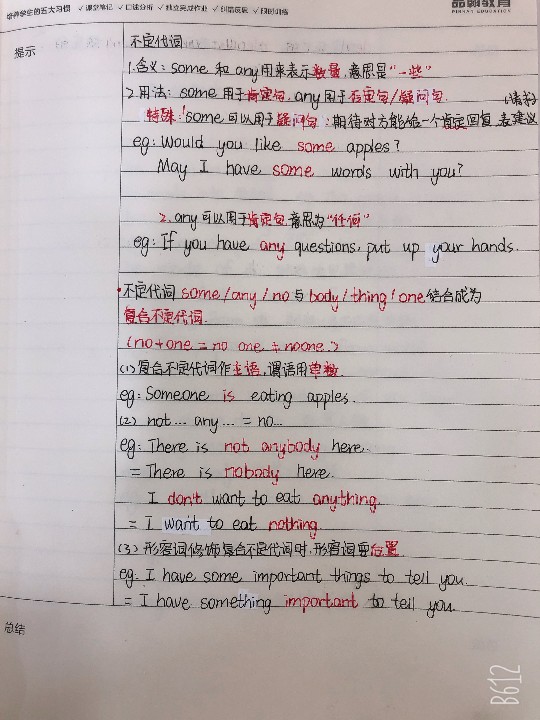 培养学生的五大习惯 ✓课堂笔记 ✓口述分析 ✓独立完成作业 ✓纠错反思 ✓限时训练
品翰教育
PINHAN EDUCATION
提示
不定代词
1.含义: some 和 any用来表示数量,意思是"一些"
2.用法: some 用于肯定句, any 用于否定句/疑问句. (请求)
特殊: 1some 可以用于疑问句: 期待对方能给一个肯定回复 表建议
eg: Would you like some apples?
May I have some words with you?
2. any 可以用于肯定句 意思为"任何"
eg: If you have any questions, put up your hands.
•不定代词 some/any/no 与 body/thing/one 结合成为
复合不定代词.
(no+one = no one ≠ noone.)
(1)复合不定代词作主语,谓语用单数
eg: Someone is eating apples.
(2) not... any... = no...
eg: There is not anybody here.
= There is nobody here.
I don't want to eat anything.
= I want to eat nothing.
(3) 形容词修饰复合不定代词时,形容词要后置
eg: I have some important things to tell you.
= I have something important to tell you.
总结
B612